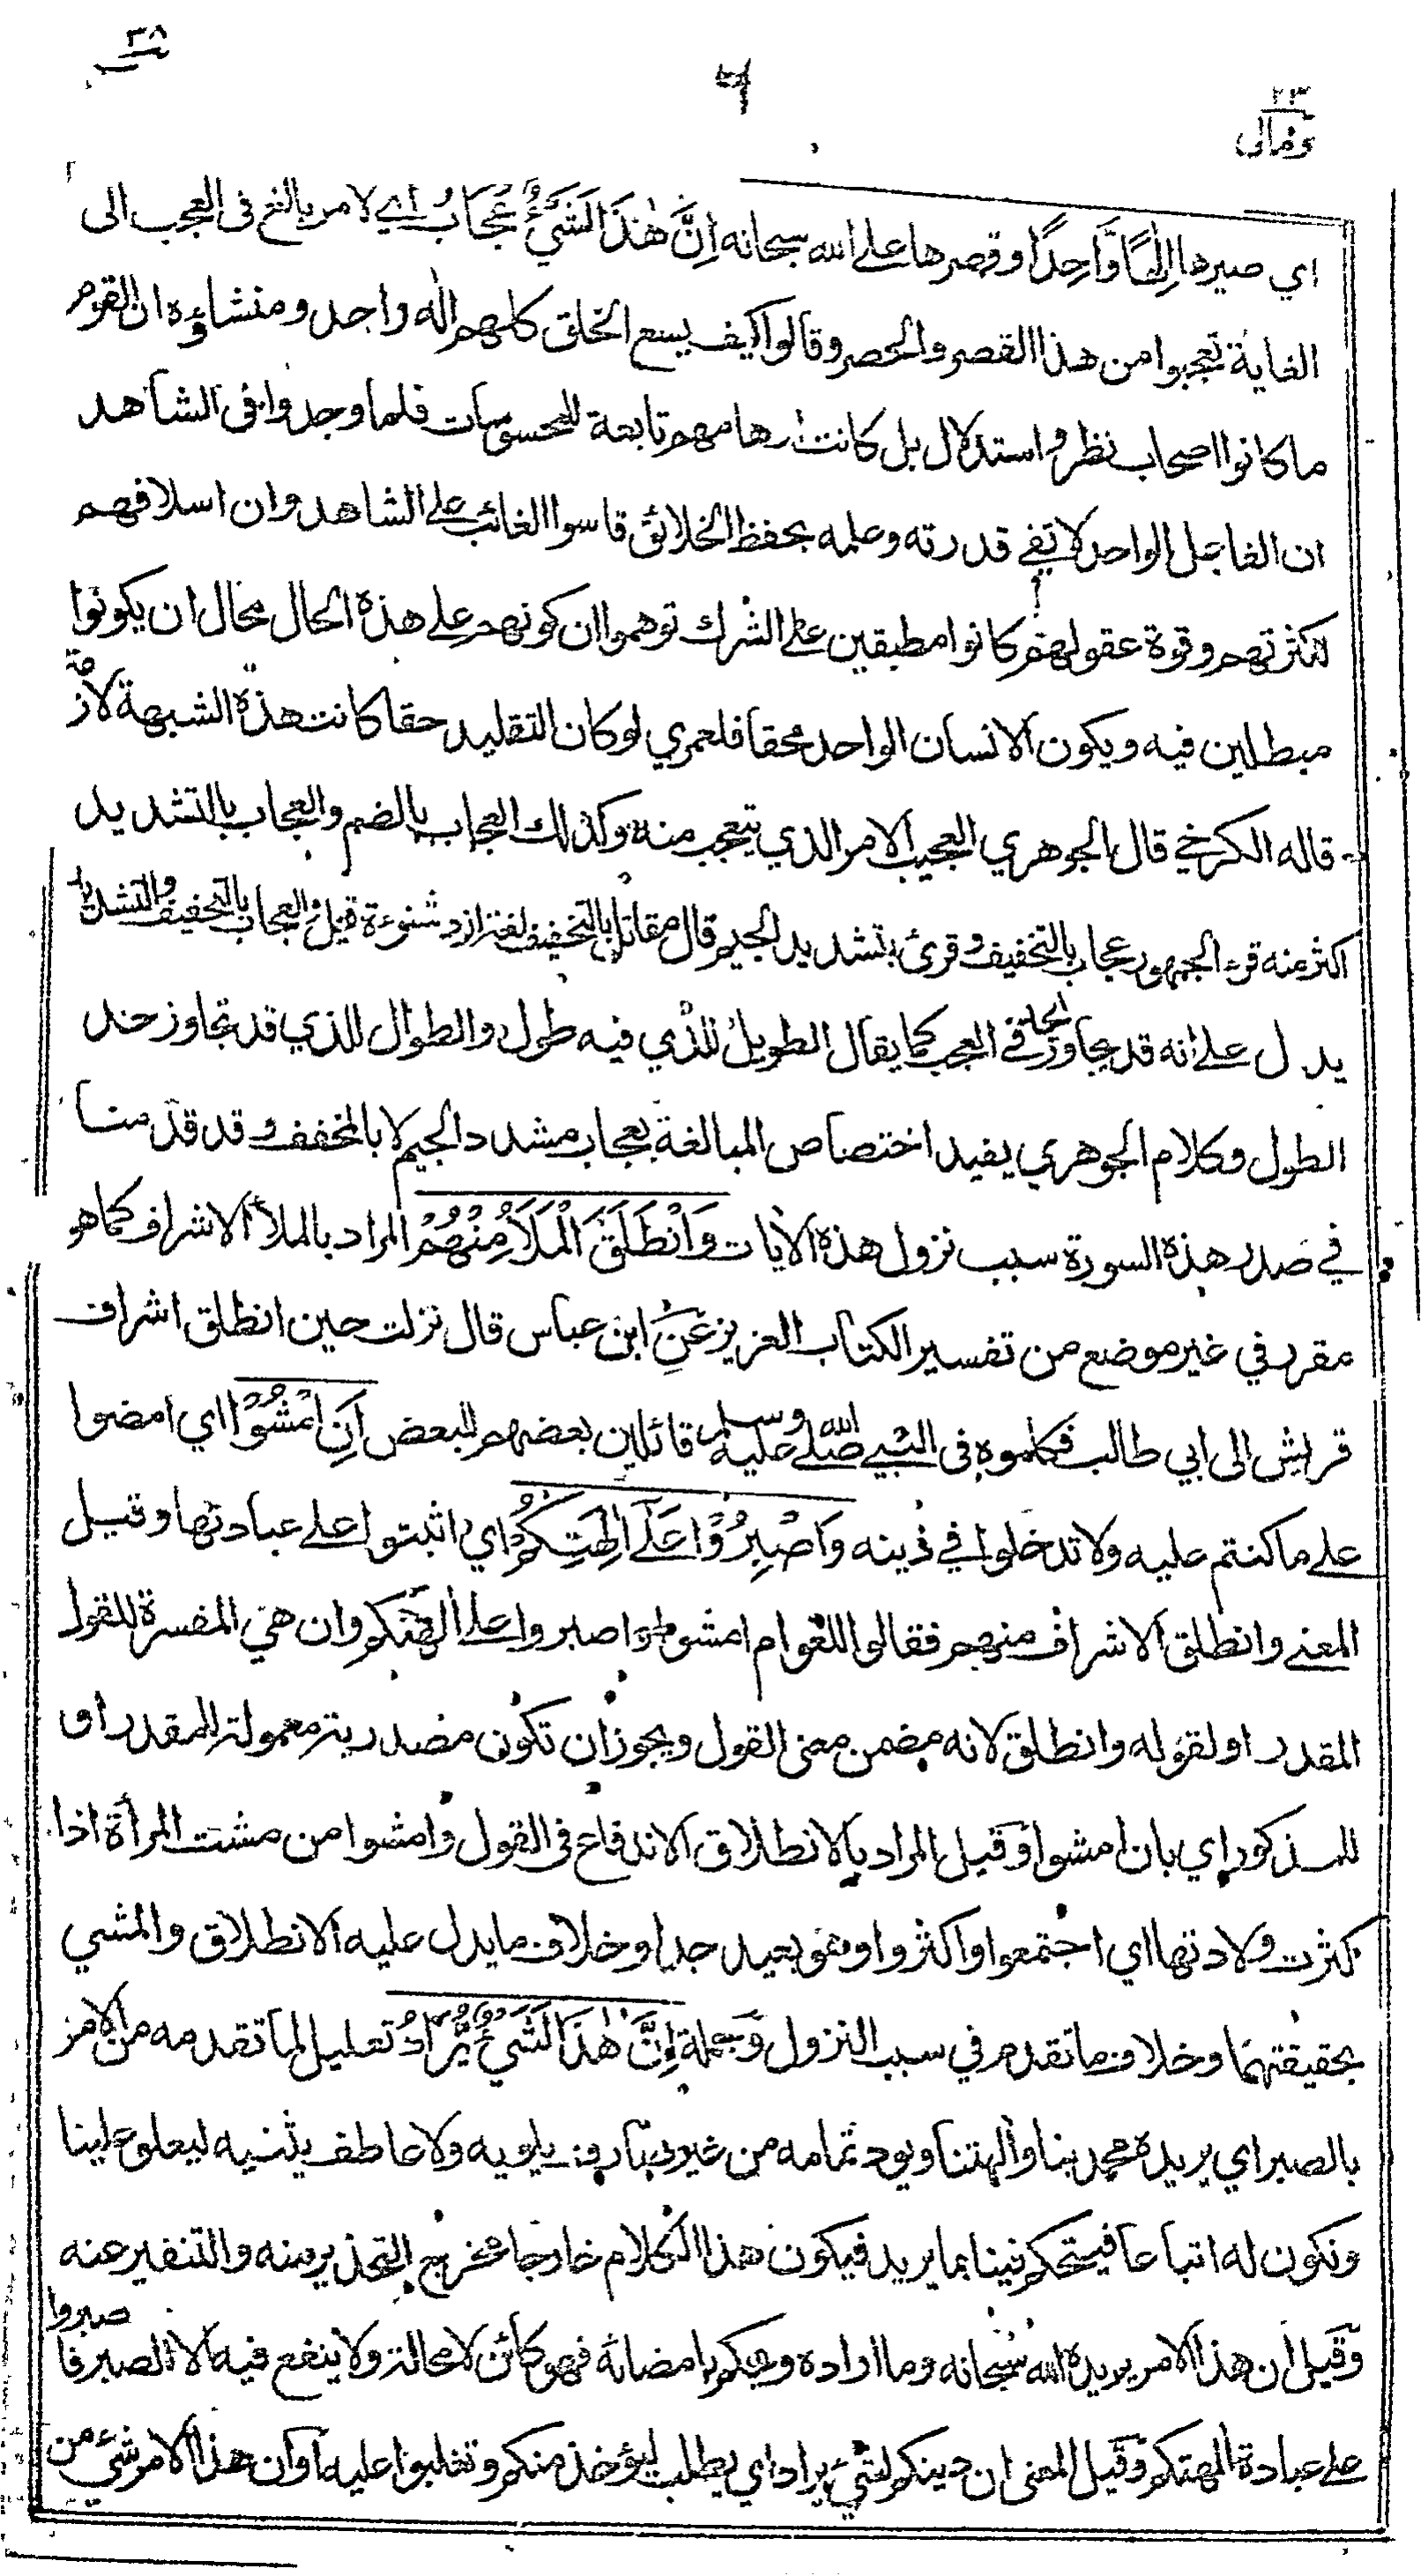 ٣٨
٦
٢٣
ومالي
اي صيرها اِلٰهًا وَّاحِدًا وقصرها على الله سبحانه اِنَّ هٰذَا لَشَيْءٌ عُجَابٌ اي لامر بالغ في العجب الى
الغاية تعجبوا من هذا القصر والحصر وقالوا كيف يسع الخلق كلهم اله واحد ومنشاؤه ان القوم
ما كانوا اصحاب نظر واستدلال بل كانت اوهامهم تابعة للمحسوسات فلما وجدوا في الشاهد
ان الفاعل الواحد لا تفي قدرته وعلمه بحفظ الخلائق قاسوا الغائب على الشاهد وان اسلافهم
لكثرتهم وقوة عقولهم كانوا مطبقين على الشرك توهموا ان كونهم على هذه الحال محال ان يكونوا
مبطلين فيه ويكون الانسان الواحد محقا فلعمري لو كان التقليد حقا كانت هذه الشبهة لازمة
قاله الكرخي قال الجوهري العجيب الامر الذي يتعجب منه وكذلك العجاب بالضم والعجاب بالتشديد
اكثر منه قرء الجمهور عجاب بالتخفيف وقرئ بتشديد الجيم قال مقاتل بالتخفيف لغة ازد شنوءة قيل والعجاب بالتخفيف والتشديد
يدل على انه قد تجاوز الحد في العجب كما يقال الطويل للذي فيه طول والطوال للذي قد تجاوز حد
الطول وكلام الجوهري يفيد اختصاص المبالغة بعجاب مشدد الجيم لا بالمخفف وقد قدمنا
في صدر هذه السورة سبب نزول هذه الايات وَانْطَلَقَ الْمَلَاُ مِنْهُمْ المراد بالملأ الاشراف كما هو
مقرر في غير موضع من تفسير الكتاب العزيز عن ابن عباس قال نزلت حين انطلق اشراف
قريش الى ابي طالب فكلموه في النبي صلى الله عليه وسلم قائلين بعضهم لبعض اَنِ امْشُوْا اي امضوا
على ما كنتم عليه ولا تدخلوا في دينه وَاصْبِرُوْا عَلٰٓى اٰلِهَتِكُمْ اي اثبتوا على عبادتها وقيل
المعنى وانطلق الاشراف منهم فقالوا للعوام امشوا واصبروا على الهتكم وان هي المفسرة للقول
المقدر او لقوله وانطلق لانه مضمن معنى القول ويجوز ان تكون مصدرية معمولة للمقدر او
للمذكور اي بان امشوا وقيل المراد بالانطلاق الاندفاع في القول وامشوا من مشت المرأة اذا
كثرت ولادتها اي اجتمعوا واكثروا وهو بعيد جدا وخلاف ما يدل عليه الانطلاق والمشي
بحقيقتهما وخلاف ما تقدم في سبب النزول وجملة اِنَّ هٰذَا لَشَيْءٌ يُّرَادُ تعليل لما تقدمه من الامر
بالصبر اي يريده محمد بنا وبالهتنا ويود تمامه من غير صارف يلويه ولا عاطف يثنيه ليعلو علينا
ونكون له اتباعا فيتحكم فينا بما يريد فيكون هذا الكلام خارجا مخرج التحذير منه والتنفير عنه
وقيل ان هذا الامر يريده الله سبحانه وما اراده وحكم بامضائه فهو كائن لا محالة ولا ينفع فيه الا الصبر فاصبروا
على عبادة الهتكم وقيل المعنى ان دينكم لشيء يراد اي يطلب ليؤخذ منكم وتغلبوا عليه او ان هذا الامر شيء من